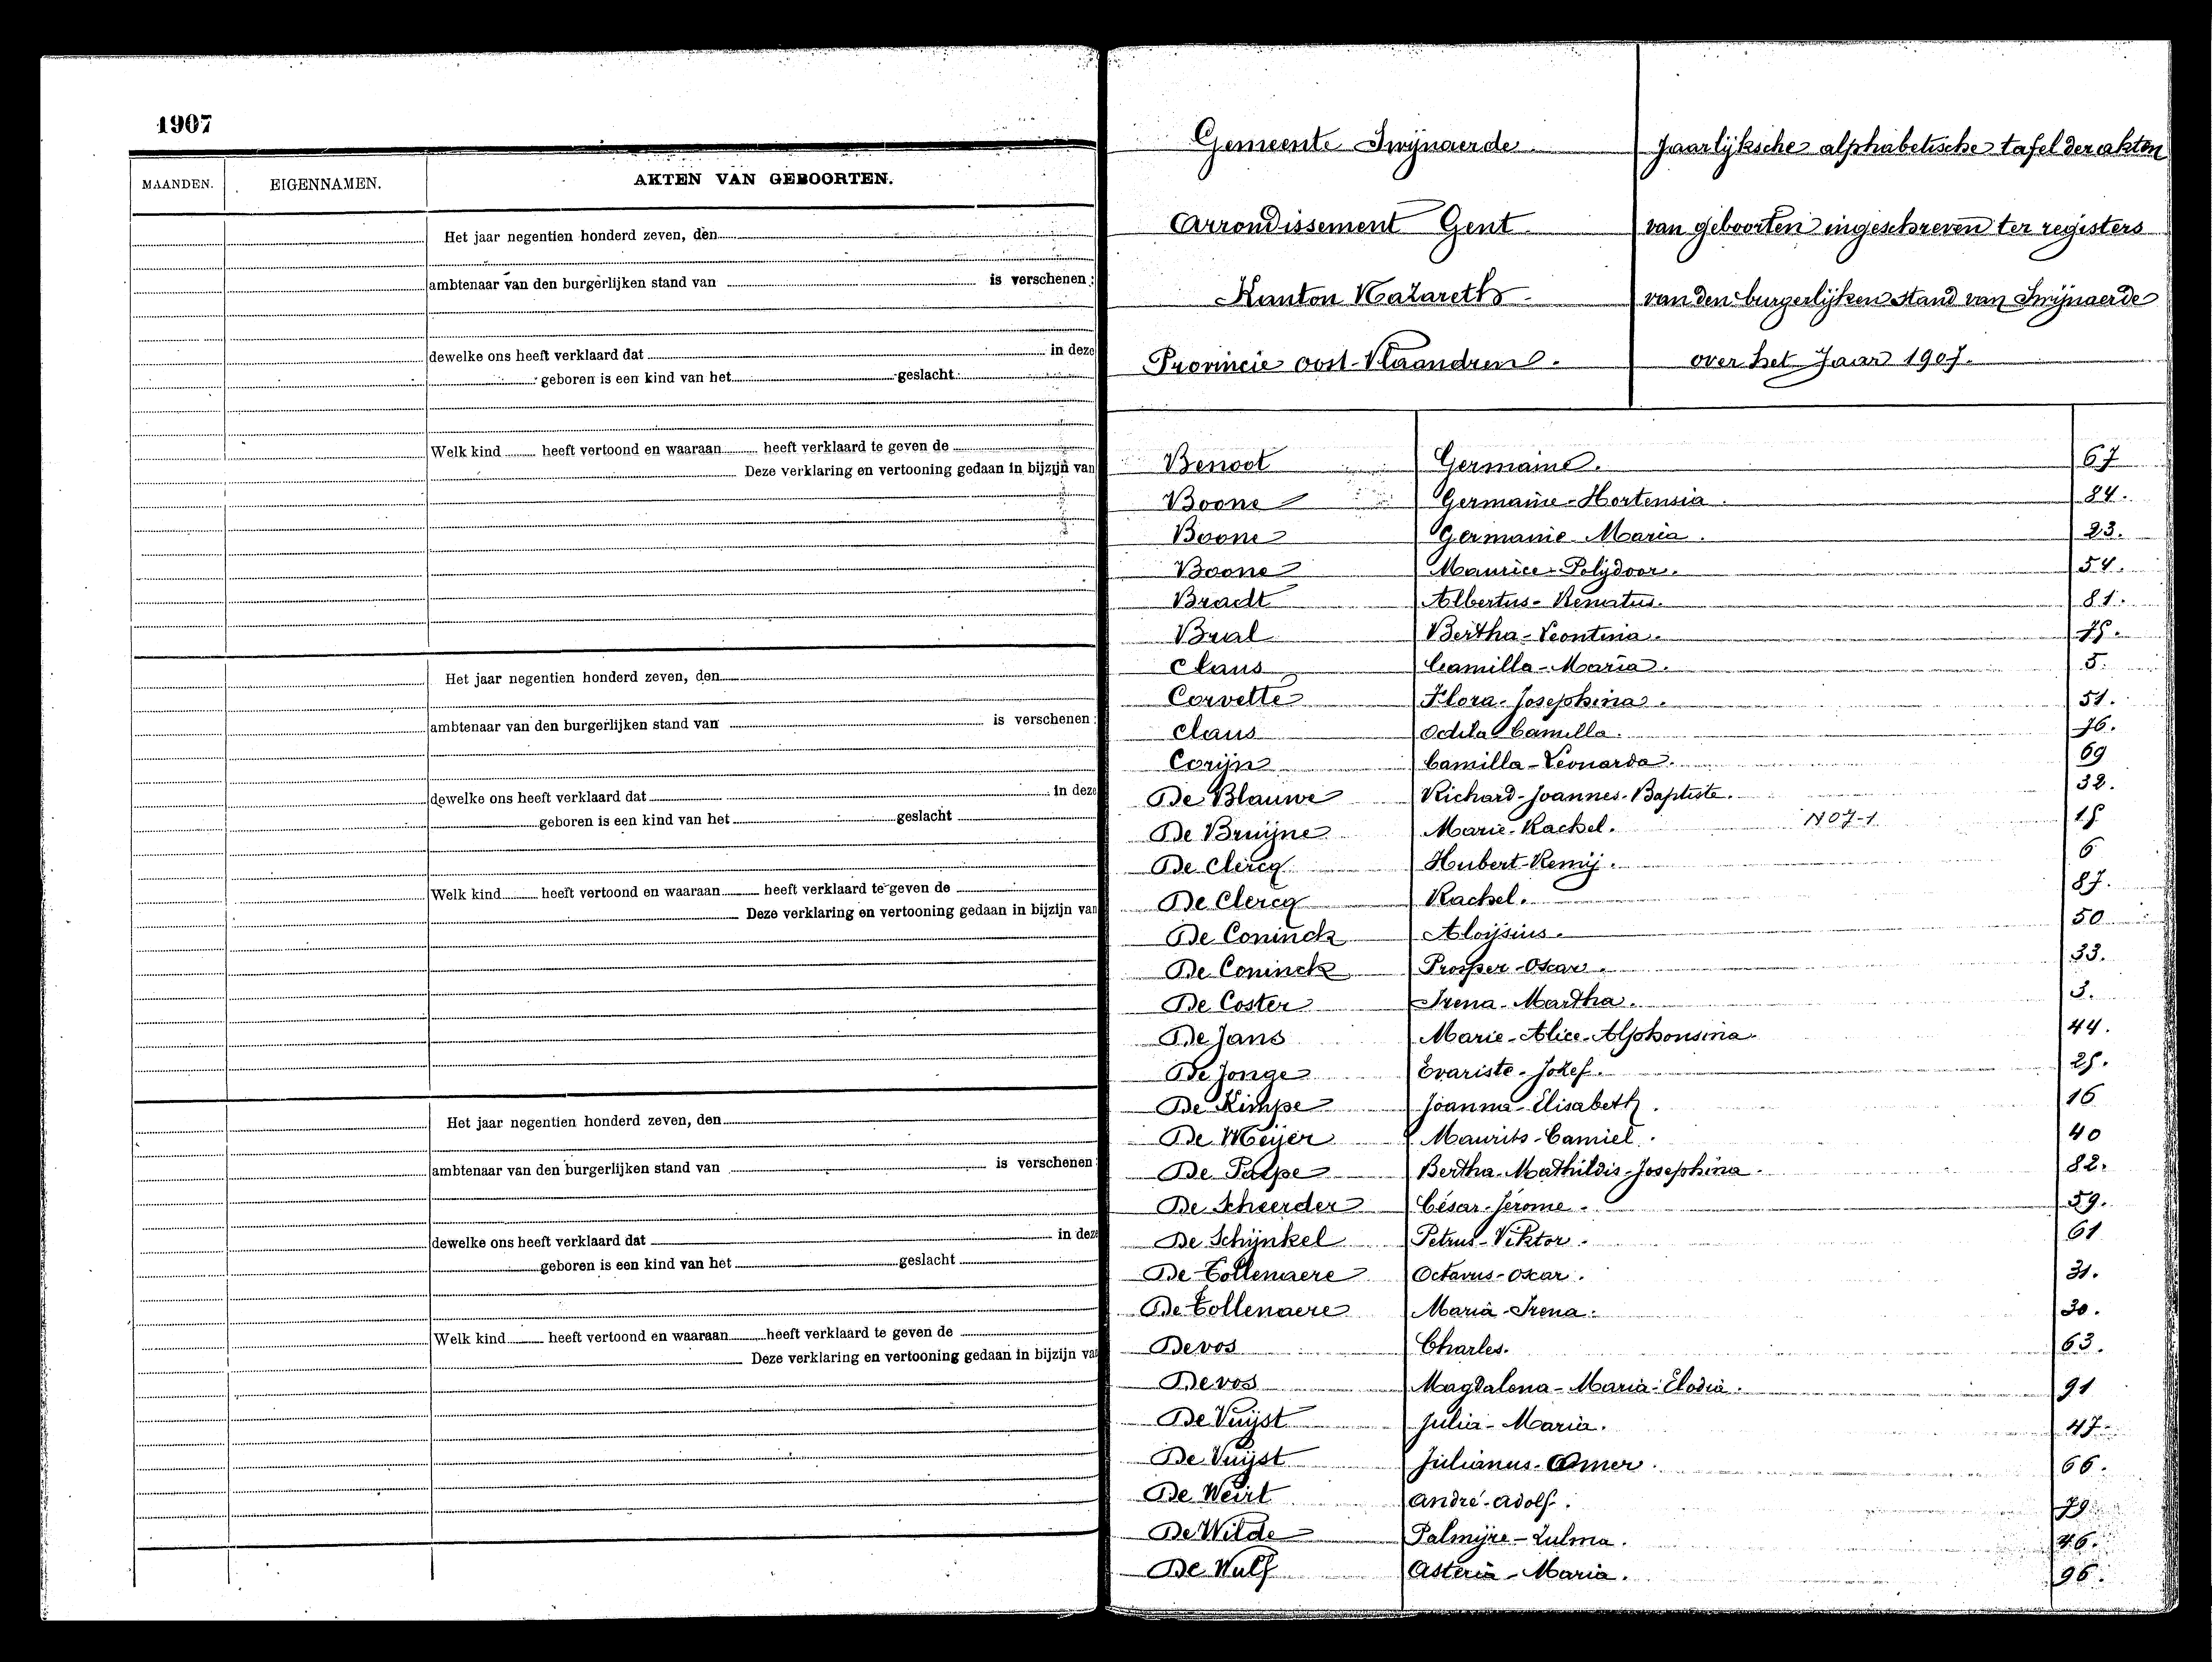 1907
MAANDEN. EIGENNAMEN. AKTEN VAN GEBOORTEN.
Het jaar negentien honderd zeven, den
ambtenaar van den burgerlijken stand van is verschenen:
dewelke ons heeft verklaard dat in deze
geboren is een kind van het geslacht
Welk kind heeft vertoond en waaraan heeft verklaard te geven de
Deze verklaring en vertooning gedaan in bijzijn van
Het jaar negentien honderd zeven, den
ambtenaar van den burgerlijken stand van is verschenen:
dewelke ons heeft verklaard dat in deze
geboren is een kind van het geslacht
Welk kind heeft vertoond en waaraan heeft verklaard te geven de
Deze verklaring en vertooning gedaan in bijzijn van
Het jaar negentien honderd zeven, den
ambtenaar van den burgerlijken stand van is verschenen
dewelke ons heeft verklaard dat in dez
geboren is een kind van het geslacht
Welk kind heeft vertoond en waaraan heeft verklaard te geven de
Deze verklaring en vertooning gedaan in bijzijn va
Gemeente Swijnaerde
Arrondissement Gent
Kanton Nazareth
Provincie Oost-Vlaandren.
Jaarlijksche alphabetische tafel der akten
van geboorten ingeschreven ter registers
van den burgerlijken stand van Swijnaerde
over het Jaar 1907.
Benoot Germaine. 67
Boone Germaine-Hortensia. 84.
Boone Germanie Maria. 23.
Boone Maurice-Polijdoor. 54.
Bradt Albertus-Renatus. 81.
Bral Bertha-Leontina. 75.
Claus Camilla-Maria. 5.
Corvette Flora-Josephina. 51.
Claus Odila Camilla. 76.
Corijn Camilla-Leonarda. 69
De Blauwe Richard-Joannes-Baptiste. 32.
De Bruijne Marie-Rachel. N07-1 15
De Clercq Hubert-Remij. 6
De Clercq Rachel. 87.
De Coninck Aloijsius. 50
De Coninck Prosper-Oscar. 33.
De Coster Irena-Martha. 3.
De Jans Marie-Alice-Alphonsina. 44.
De Jonge Evariste-Jozef. 25.
De Kimpe Joanna-Elisabeth. 16
De Meijer Maurits-Camiel. 40
De Paepe Bertha-Mathildis-Josephina. 82.
De Scheerder César-Jérome. 59.
De Schijnkel Petrus-Viktor. 61
De Tollenaere Octavus-Oscar. 31.
De Tollenaere Maria-Irena. 30.
Devos Charles. 63.
Devos Magdalena-Maria-Elodia. 91
De Vuijst Julia-Maria. 47.
De Vuijst Julianus-Omer. 66.
De Weirt André-Adolf. 79.
De Wilde Palmijre-Zulma. 46.
De Wulf Asteria-Maria. 96.